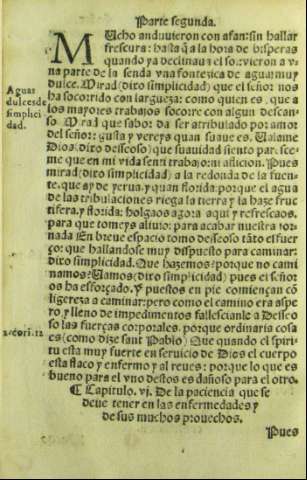 Parte segunda.
Mucho anduuieron con afan: sin hallar
frescura: hasta q̃ a la hora de bisperas
quando ya declinaua el sol: vieron a v
na parte de la senda vna fontezica de agua muy
dulce. Mirad (dixo simplicidad) que el señor nos
ha socorrido con largueza: como quien es, que a
los mayores trabajos socorre con algun descan-
so. Mirad que sabor ha de ser atribuydo por amor
del señor: gusta y vereys quan suaue es. Valame
Dios (dixo desseoso) que suauidad siento paresce
me que en mi vida senti trabajo: ni aflicion. Pues
mirad (dixo simplicidad) a la redonda de la fuen-
te, que ay de yerua, y quan florida: porque el agua
de las tribulaciones riega la tierra y la haze fruc
tifera, y florida: holgaos agora aqui y refrescaos,
para que tomeys aliuio: para acabar nuestra jor-
nada En breue espacio tomo desseoso tãto esfuer
ço: que hallandose muy dispuesto para caminar:
dixo simplicidad. Que hazemos: porque no cami
namos: Uamos (dixo simplicidad) pues el señor
os ha esforçado. Y puestos en pie comiençan cõ
ligereza a caminar: pero como el camino era aspe
ro, y lleno de impedimentos fallescianle a Desseo
so las fuerças corporales. porque ordinaria cosa
es (como dize sant Pablo) Que quando el spiri-
tu esta muy fuerte en seruicio de Dios el cuerpo
esta flaco y enfermo, y al reues: porque lo que es
bueno para el vno destos es dañoso para el otro.
¶ Capitulo. vj. De la paciencia que se
deue tener en las enfermedades y
de sus muchos prouechos.
Pues
Aguas
dulces de
simplici
dad.
2. cori. 12